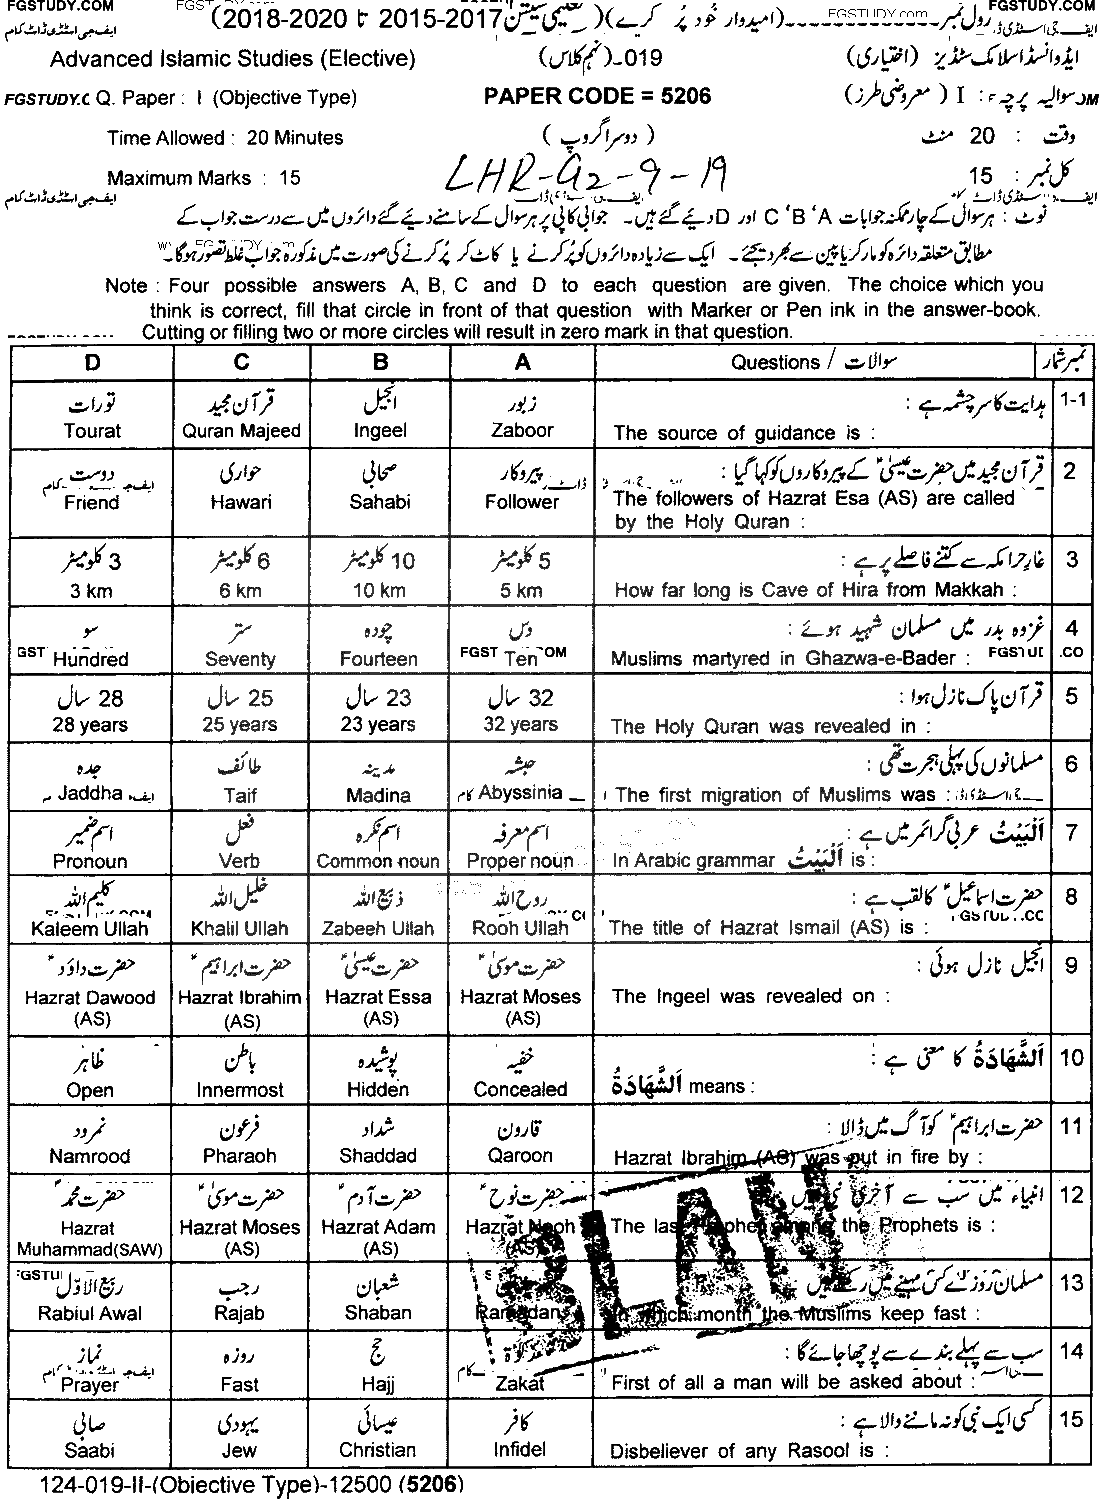 FGSTUDY.COM
FGSTUDY.COM
رول نمبر (امیدوار خود پُر کرے) (تعلیمی سیشن 2015-2017 تا 2018-2020)
ایف جی اسٹڈی ڈاٹ کام
Advanced Islamic Studies (Elective)
019۔(نہم کلاس)
ایڈوانسڈ اسلامک سٹڈیز (اختیاری)
FGSTUDY.C Q. Paper : I (Objective Type)
PAPER CODE = 5206
سوالیہ پرچہ : I (معروضی طرز)
Time Allowed : 20 Minutes
(دوسرا گروپ)
وقت : 20 منٹ
Maximum Marks : 15
LHR-G2-9-19
کل نمبر : 15
ایف جی اسٹڈی ڈاٹ کام
نوٹ : ہر سوال کے چار ممکنہ جوابات C ' B ' A اور D دیئے گئے ہیں۔ جوابی کاپی پر ہر سوال کے سامنے دیئے گئے دائروں میں سے درست جواب کے
مطابق متعلقہ دائرہ کو مارکر یا پین سے بھر دیجئے۔ ایک سے زیادہ دائروں کو پُر کرنے یا کاٹ کر پُر کرنے کی صورت میں مذکورہ جواب غلط تصور ہوگا۔
Note : Four possible answers A, B, C and D to each question are given. The choice which you
think is correct, fill that circle in front of that question with Marker or Pen ink in the answer-book.
Cutting or filling two or more circles will result in zero mark in that question.
D C B A Questions / سوالات نمبر شمار
تورات قرآن مجید انجیل زبور ہدایت کا سرچشمہ ہے : 1-1
Tourat Quran Majeed Ingeel Zaboor The source of guidance is :
دوست حواری صحابی پیروکار قرآن مجید میں حضرت عیسیٰؑ کے پیروکاروں کو کہا گیا : 2
Friend Hawari Sahabi Follower The followers of Hazrat Esa (AS) are called
by the Holy Quran :
3 کلومیٹر 6 کلومیٹر 10 کلومیٹر 5 کلومیٹر غارِ حرا مکہ سے کتنے فاصلے پر ہے : 3
3 km 6 km 10 km 5 km How far long is Cave of Hira from Makkah :
سو ستر چودہ دس غزوہ بدر میں مسلمان شہید ہوئے : 4
Hundred Seventy Fourteen Ten Muslims martyred in Ghazwa-e-Bader :
28 سال 25 سال 23 سال 32 سال قرآن پاک نازل ہوا : 5
28 years 25 years 23 years 32 years The Holy Quran was revealed in :
جدہ طائف مدینہ حبشہ مسلمانوں کی پہلی ہجرت تھی : 6
Jaddha Taif Madina Abyssinia The first migration of Muslims was :
اسم ضمیر فعل اسم نکرہ اسم معرفہ اَلْبَیْتُ عربی گرائمر میں ہے : 7
Pronoun Verb Common noun Proper noun In Arabic grammar اَلْبَیْتُ is :
کلیم اللہ خلیل اللہ ذبیح اللہ روح اللہ حضرت اسماعیلؑ کا لقب ہے : 8
Kaleem Ullah Khalil Ullah Zabeeh Ullah Rooh Ullah The title of Hazrat Ismail (AS) is :
حضرت داؤدؑ حضرت ابراہیمؑ حضرت عیسیٰؑ حضرت موسیٰؑ انجیل نازل ہوئی : 9
Hazrat Dawood (AS) Hazrat Ibrahim (AS) Hazrat Essa (AS) Hazrat Moses (AS) The Ingeel was revealed on :
ظاہر باطن پوشیدہ خفیہ اَلشَّھَادَةُ کا معنی ہے : 10
Open Innermost Hidden Concealed اَلشَّھَادَةُ means :
نمرود فرعون شداد قارون حضرت ابراہیمؑ کو آگ میں ڈالا : 11
Namrood Pharaoh Shaddad Qaroon Hazrat Ibrahim (AS) was put in fire by :
حضرت محمدؐ حضرت موسیٰؑ حضرت آدمؑ حضرت نوحؑ انبیاء میں سب سے آخری نبی ہیں 12
Hazrat Muhammad(SAW) Hazrat Moses (AS) Hazrat Adam (AS) Hazrat Nooh (AS) The last Prophet among the Prophets is :
ربیع الاوّل رجب شعبان مسلمان روزے کس مہینے میں رکھتے ہیں 13
Rabiul Awal Rajab Shaban Ramadan In which month the Muslims keep fast :
نماز روزہ حج زکوٰۃ سب سے پہلے بندے سے پوچھا جائے گا : 14
Prayer Fast Hajj Zakat First of all a man will be asked about :
صابی یہودی عیسائی کافر کسی ایک نبی کو نہ ماننے والا ہے : 15
Saabi Jew Christian Infidel Disbeliever of any Rasool is :
124-019-II-(Objective Type)-12500 (5206)